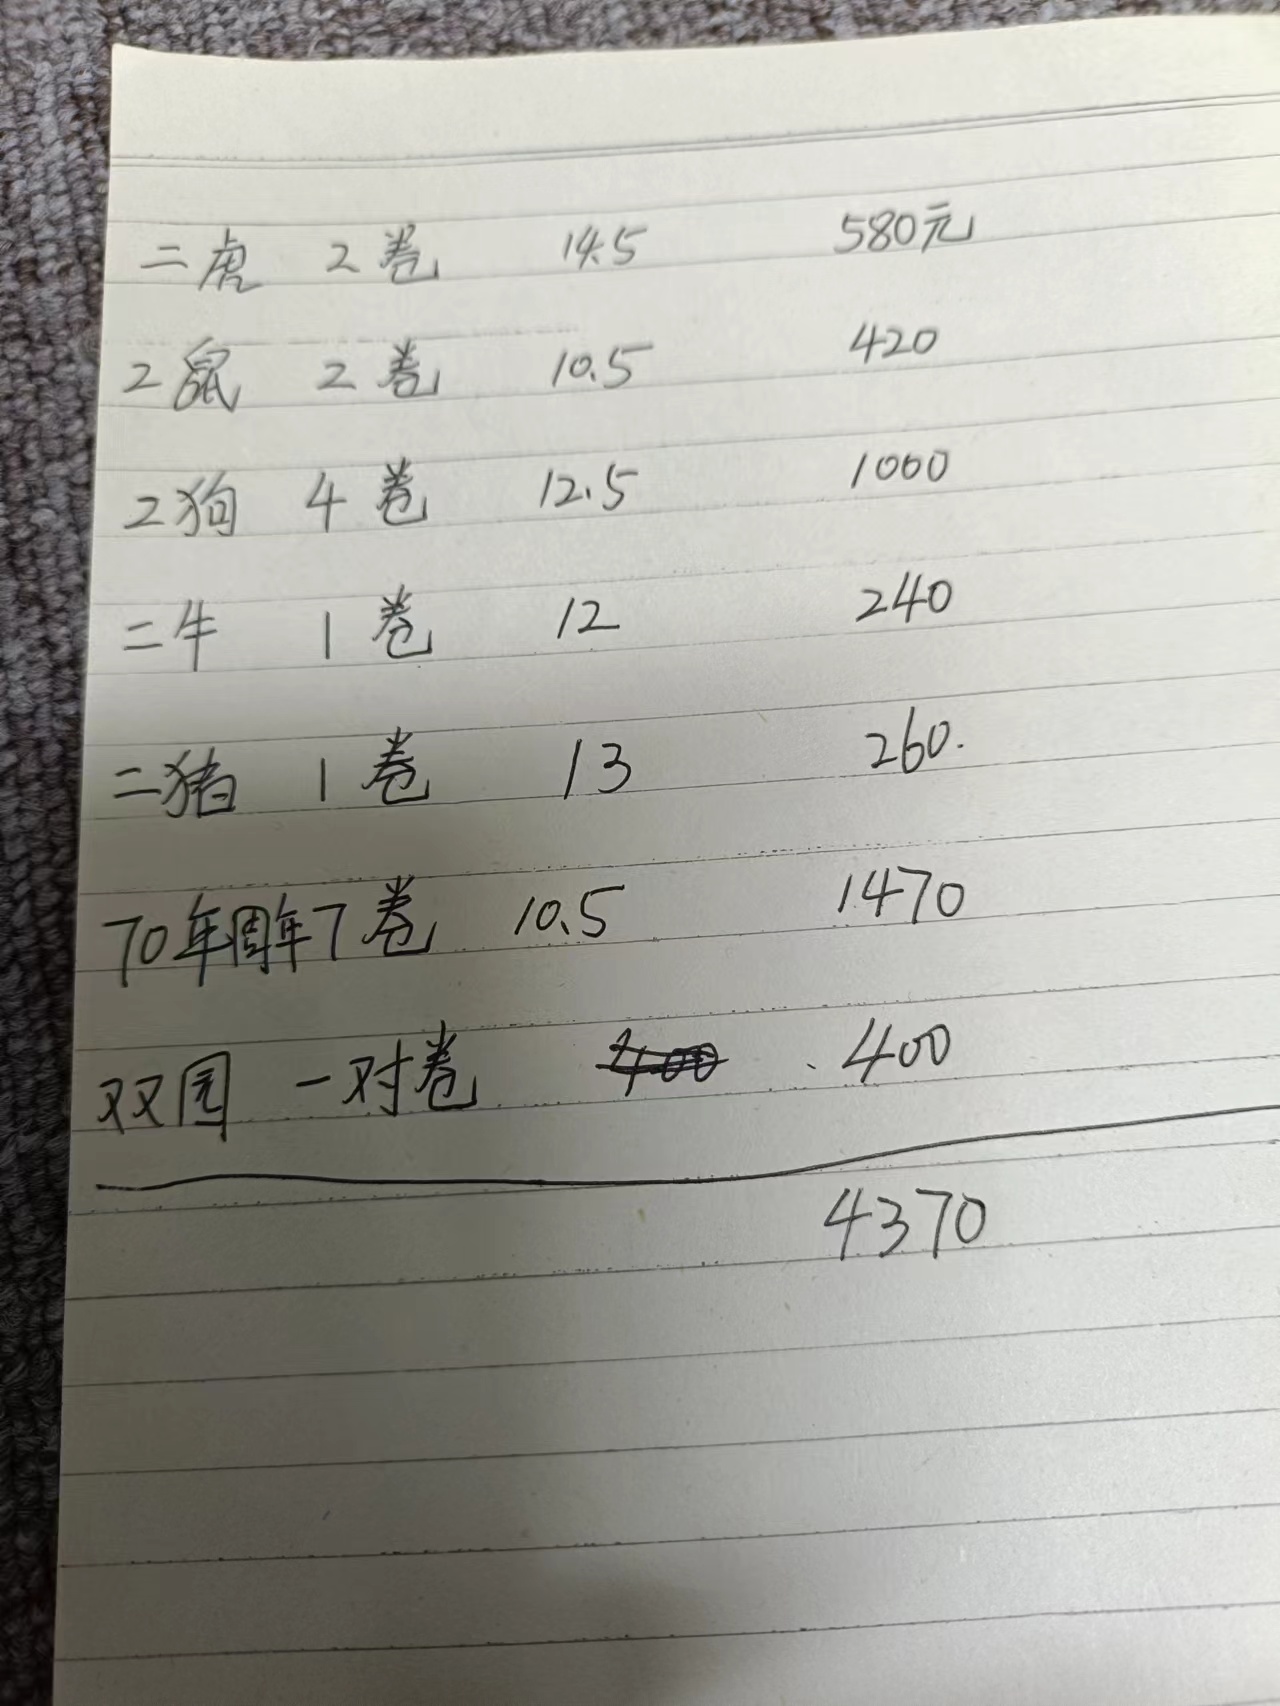 二虎 2卷 14.5 580元
2鼠 2卷 10.5 420
2狗 4卷 12.5 1000
二牛 1卷 12 240
二猪 1卷 13 260.
70年周年7卷 10.5 1470
双园 一对卷 400 400
4370